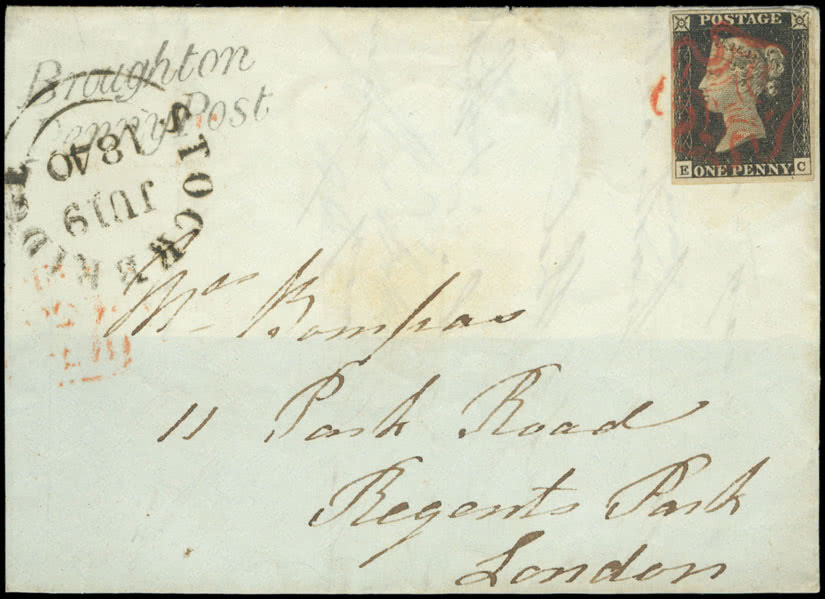 Broughton
Penny Post
STOCKBRIDGE
JU 19
1840
POSTAGE
E ONE PENNY C
Mrs Bompas
11 Park Road
Regents Park
London